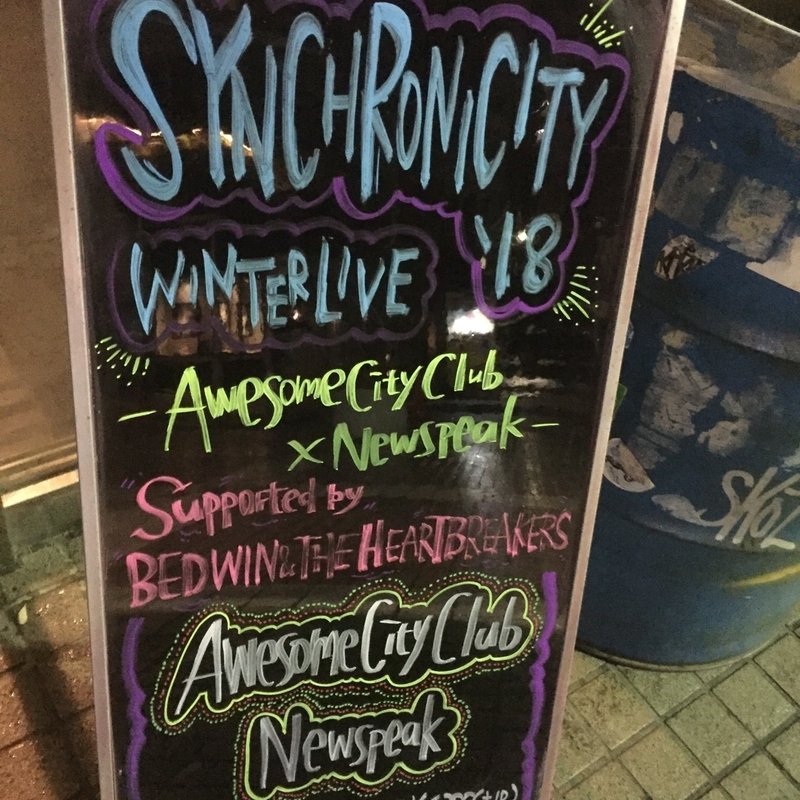 SYNCHRONICITY
'18
WINTER LIVE
- Awesome City Club
× Newspeak -
"Supported by"
BEDWIN & THE HEARTBREAKERS
Awesome City Club
Newspeak
SKOL